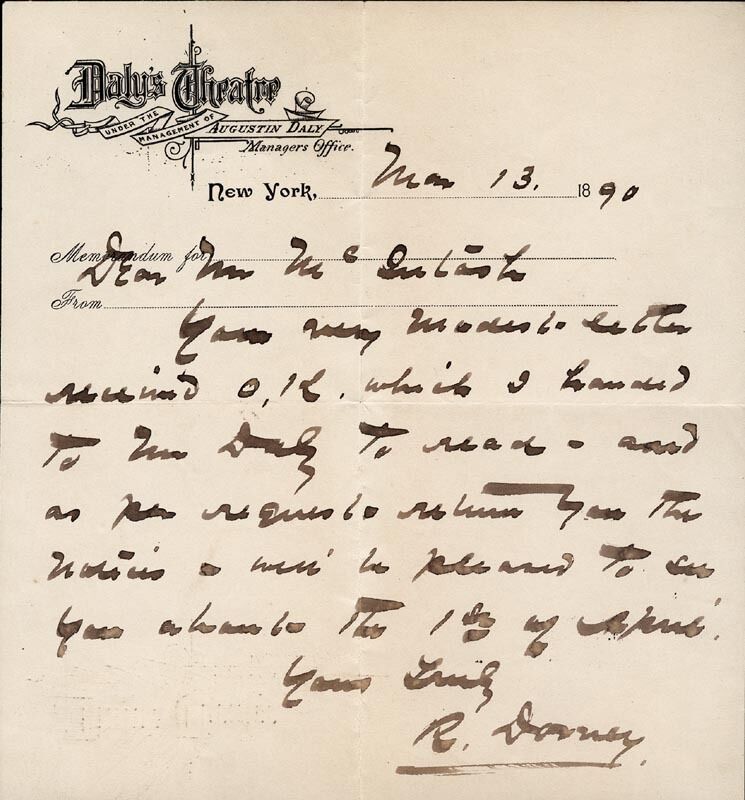 Daly's Theatre
UNDER THE MANAGEMENT OF AUGUSTIN DALY
Managers Office.
New York, Mar 13. 1890
Memorandum for
Dear Mr McIntosh
From
Your very modest letter
received O,K. which I handed
to Mr Daly to read - and
as per request return you the
notices - will be pleased to see
you about the 1st of April.
Yours Truly
R. Dorney.